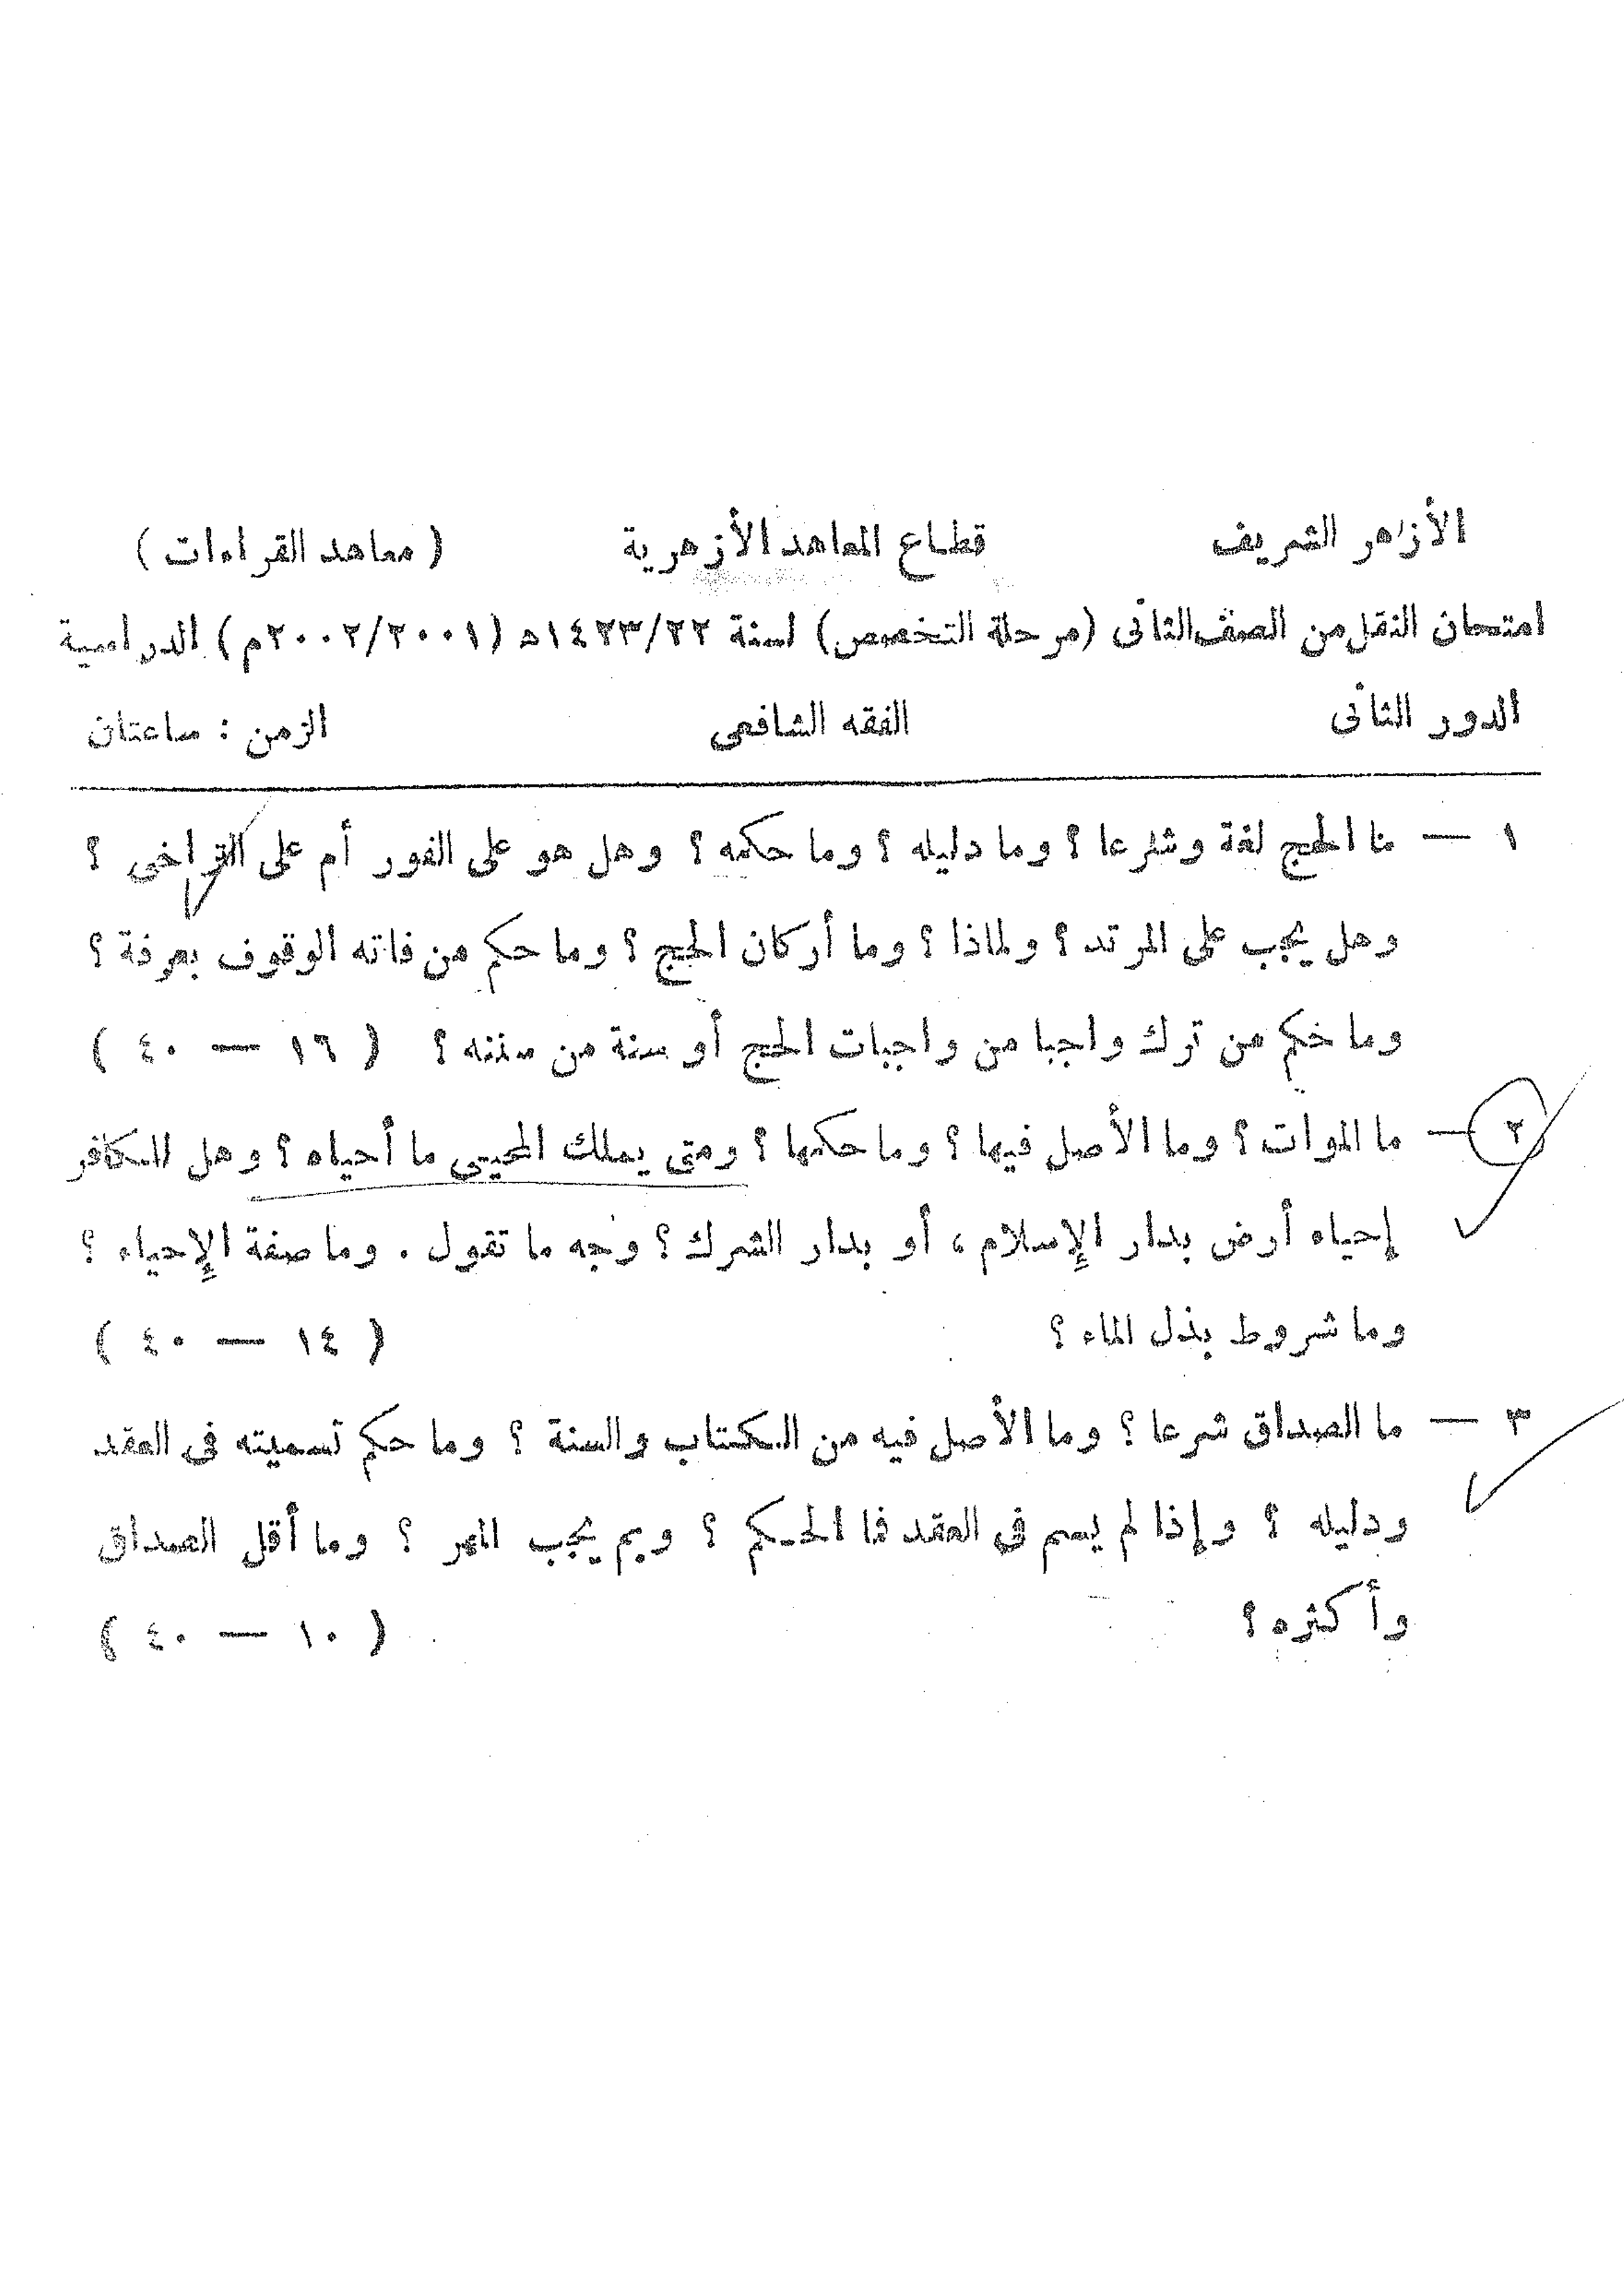 الأزهر الشريف قطاع المعاهد الأزهرية ( معاهد القراءات )
امتحان النقل من الصف الثانى (مرحلة التخصص) لسنة ١٤٢٣/٢٢ه (٢٠٠٢/٢٠٠١م) الدراسية
الدور الثانى الفقه الشافعى الزمن : ساعتان
١ — ما الحج لغة وشرعا ؟ وما دليله ؟ وما حكمه ؟ وهل هو على الفور أم على التراخى ؟
وهل يجب على المرتد ؟ ولماذا ؟ وما أركان الحج ؟ وما حكم من فاته الوقوف بعرفة ؟
وما حكم من ترك واجبا من واجبات الحج أو سنة من سننه ؟ ( ١٦ — ٤٠ )
٢ — ما الموات ؟ وما الأصل فيها ؟ وما حكمها ؟ ومتى يملك المحيى ما أحياه ؟ وهل للكافر
إحياء أرض بدار الإسلام ، أو بدار الشرك ؟ وجه ما تقول . وما صفة الإحياء ؟
وما شروط بذل الماء ؟ ( ١٤ — ٤٠ )
٣ — ما الصداق شرعا ؟ وما الأصل فيه من الكتاب والسنة ؟ وما حكم تسميته فى العقد
ودليله ؟ وإذا لم يسم فى العقد فما الحكم ؟ وبم يجب المهر ؟ وما أقل الصداق
وأكثره ؟ ( ١٠ — ٤٠ )